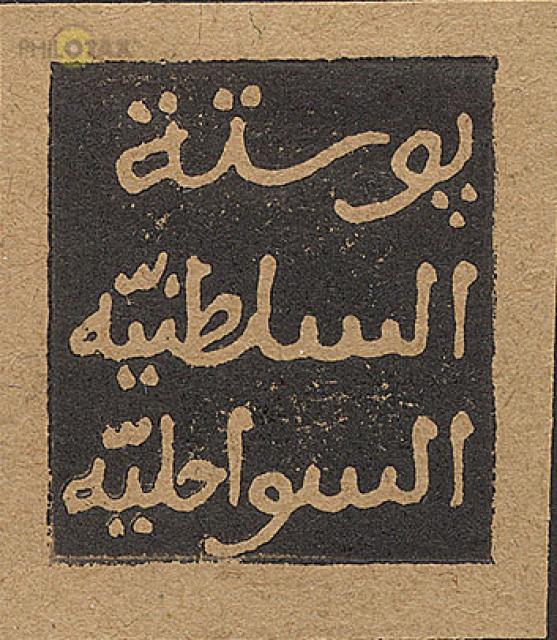 PHILOTAX
پوستة
السلطنيّه
السواحليّه